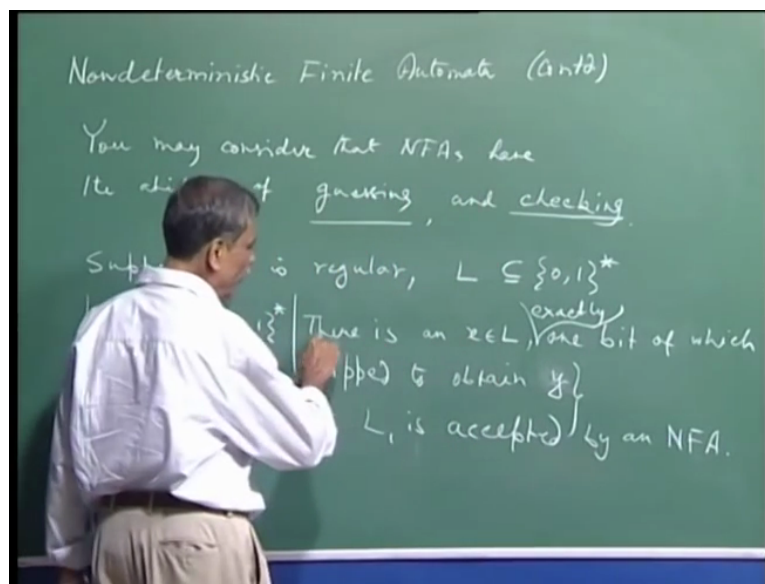 Nondeterministic Finite Automata (Contd)
You may consider that NFAs have
of guessing, and checking.
is regular, L ⊆ {0,1}*
1}* | There is an x∈L, exactly one bit of which
to obtain y}
L₁ is accepted by an NFA.